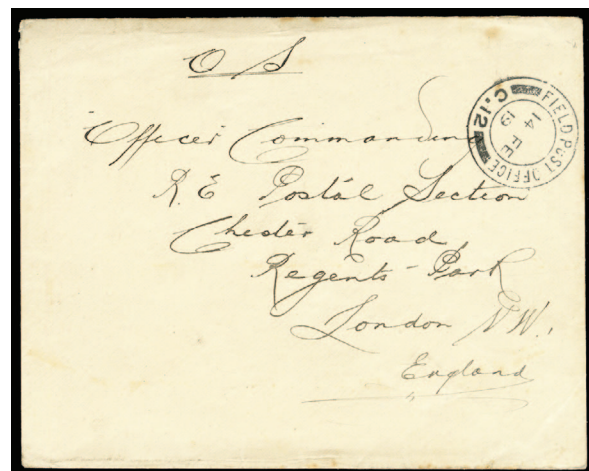 O S
Officer Commanding
R. E Postal Section
Chester Road
Regents Park
London N.W.
England
FIELD POST OFFICE
C.12
14 FE
19